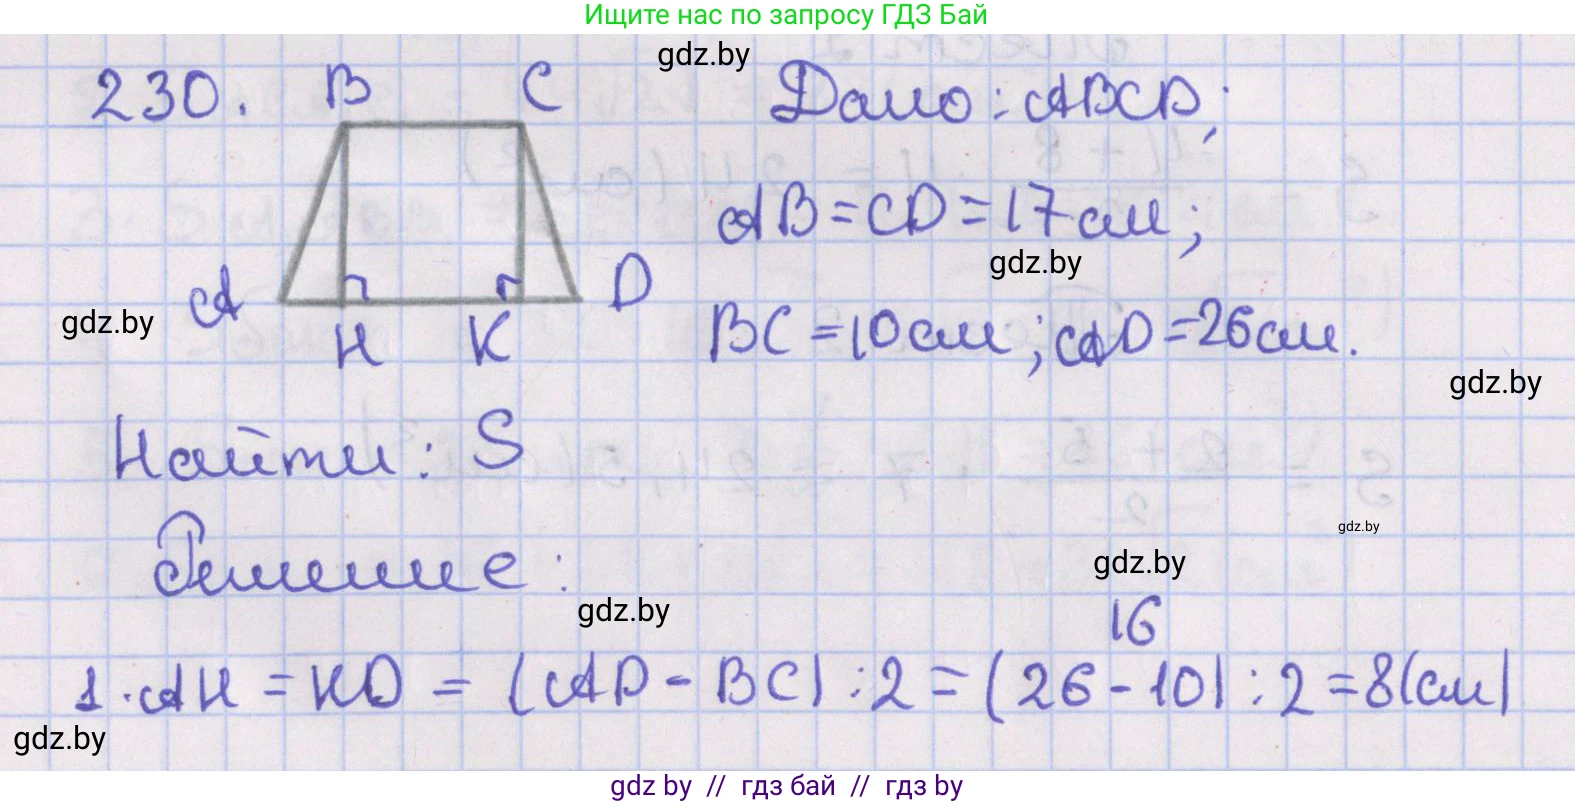 Ищите нас по запросу ГДЗ Бай
gdz.by
230. B C Дано: ABCD;
AB = CD = 17 см;
gdz.by
A H K D
gdz.by
BC = 10 см; AD = 26 см.
gdz.by
Найти: S
gdz.by
Решение:
gdz.by
gdz.by
16
1. AH = KD = (AD - BC) : 2 = (26 - 10) : 2 = 8 (см)
gdz.by
gdz by // гдз бай // гдз by